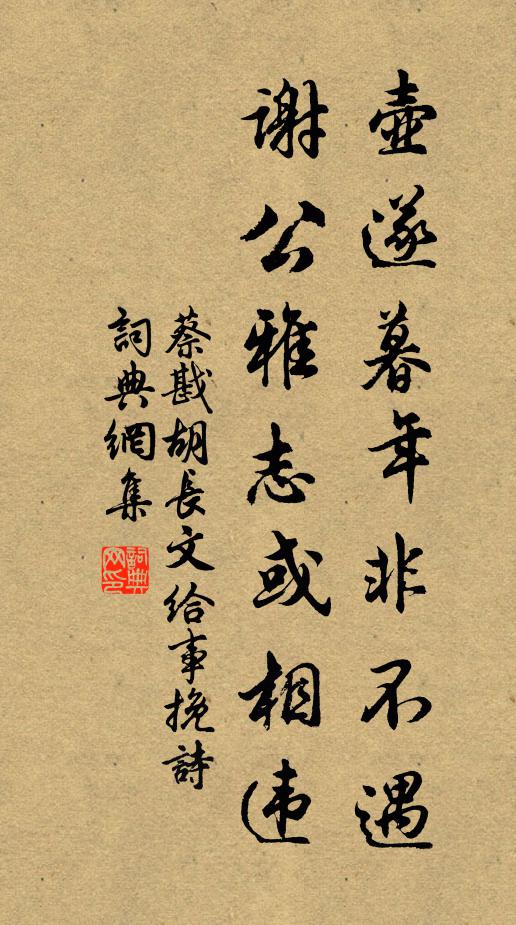 壺遂暮年非不遇
謝公雅志或相違
蔡戡胡長文給事挽詩
詞典網集
詞典网印